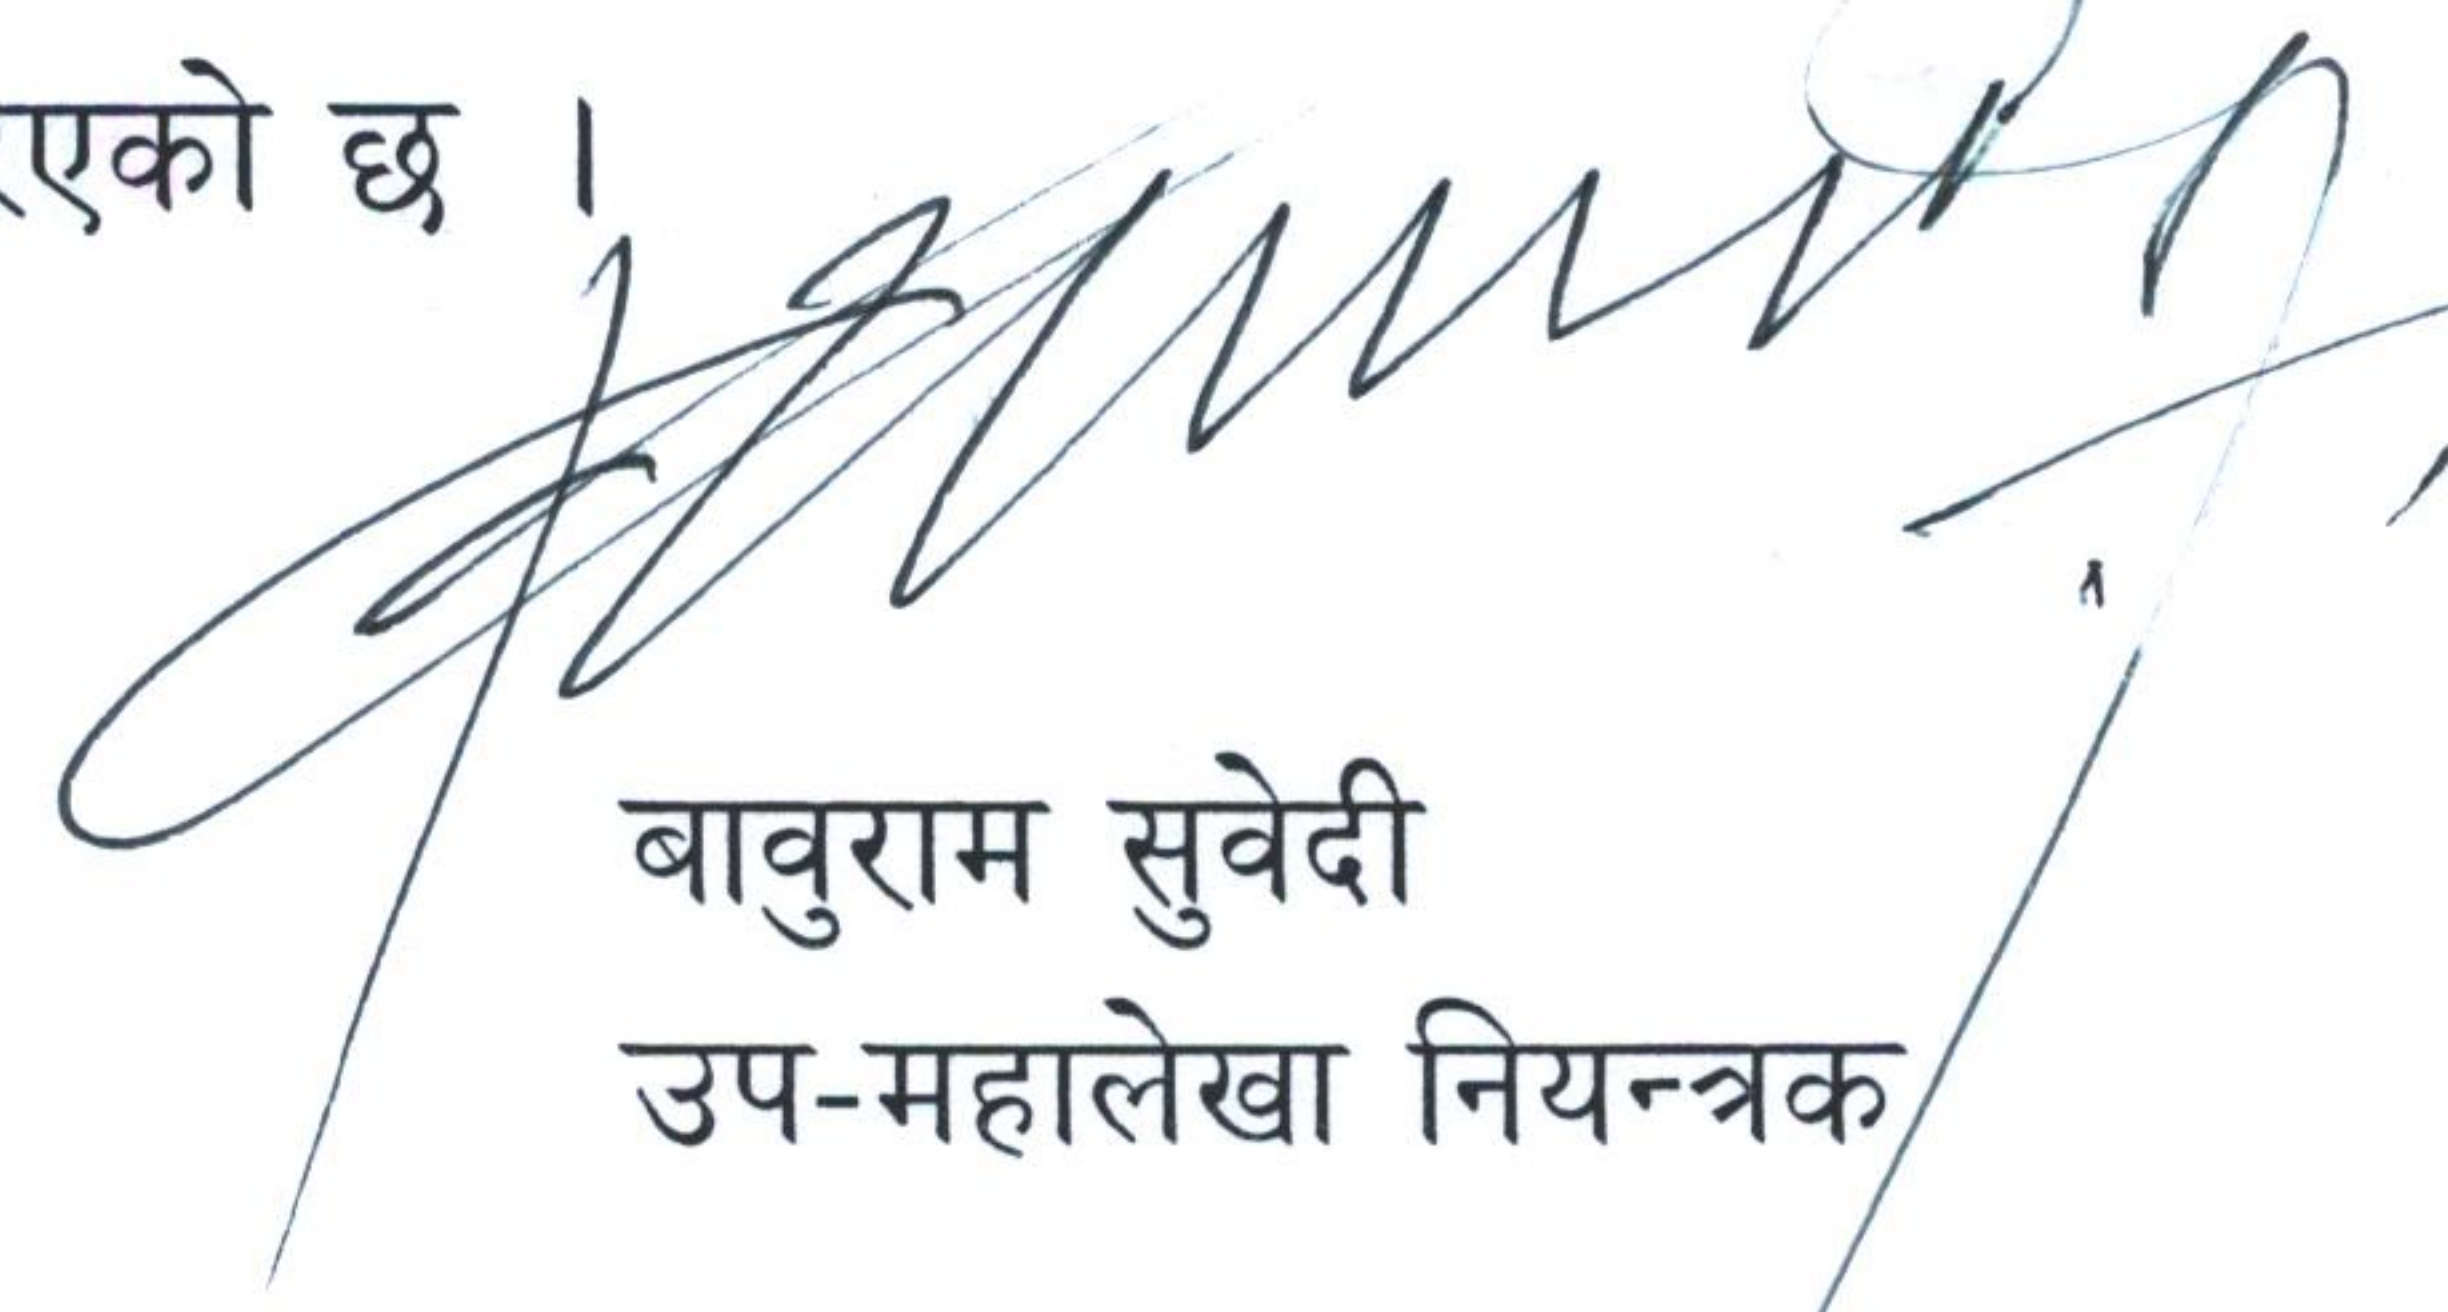 एको छ ।
बावुराम सुवेदी
उप-महालेखा नियन्त्रक